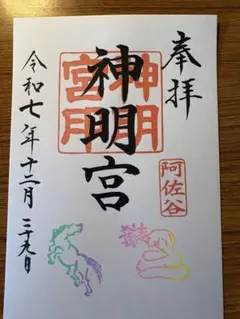 奉拝
阿佐谷
神明宮
神明宮
令和七年十二月二十九日